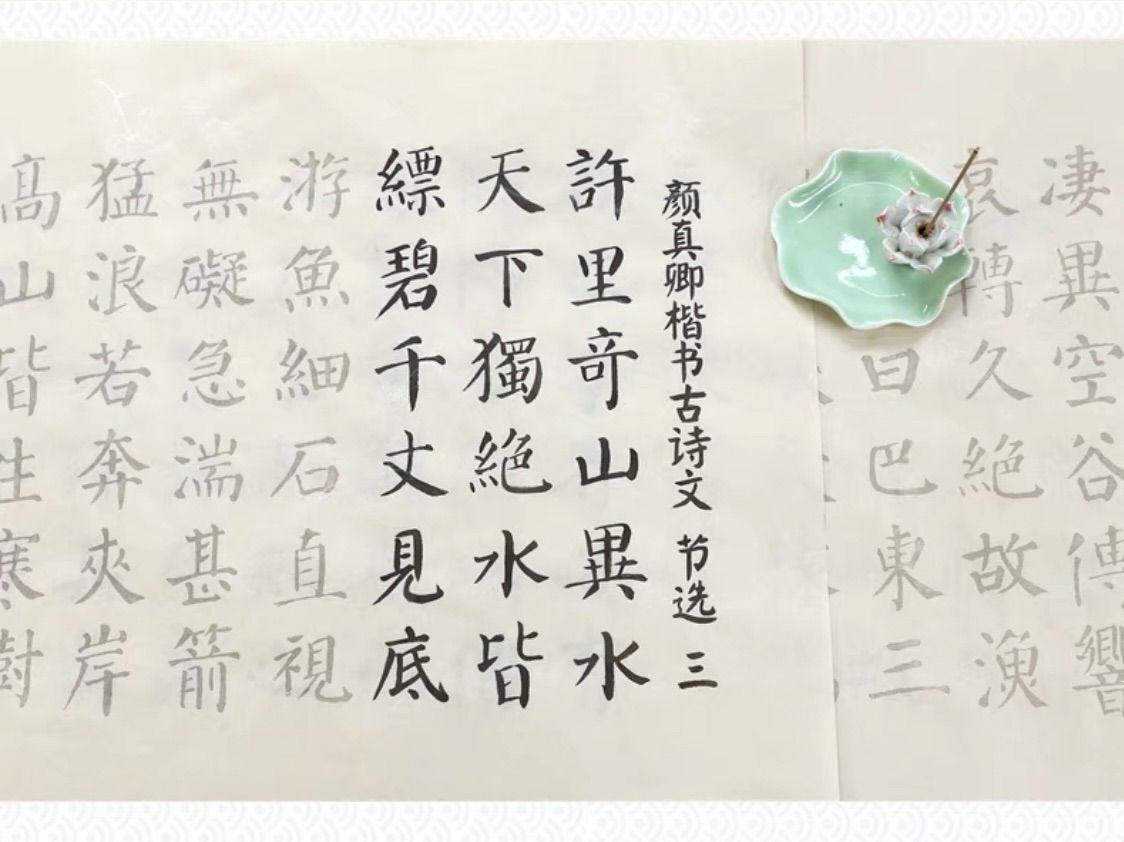 凄異空谷傳響
哀轉久絶故漁
曰巴東三
颜真卿楷书古诗文 节选 三
許里竒山異水
天下獨絶水皆
縹碧千丈見底
游魚細石直視
無礙急湍甚箭
猛浪若奔夾岸
髙山皆生寒樹